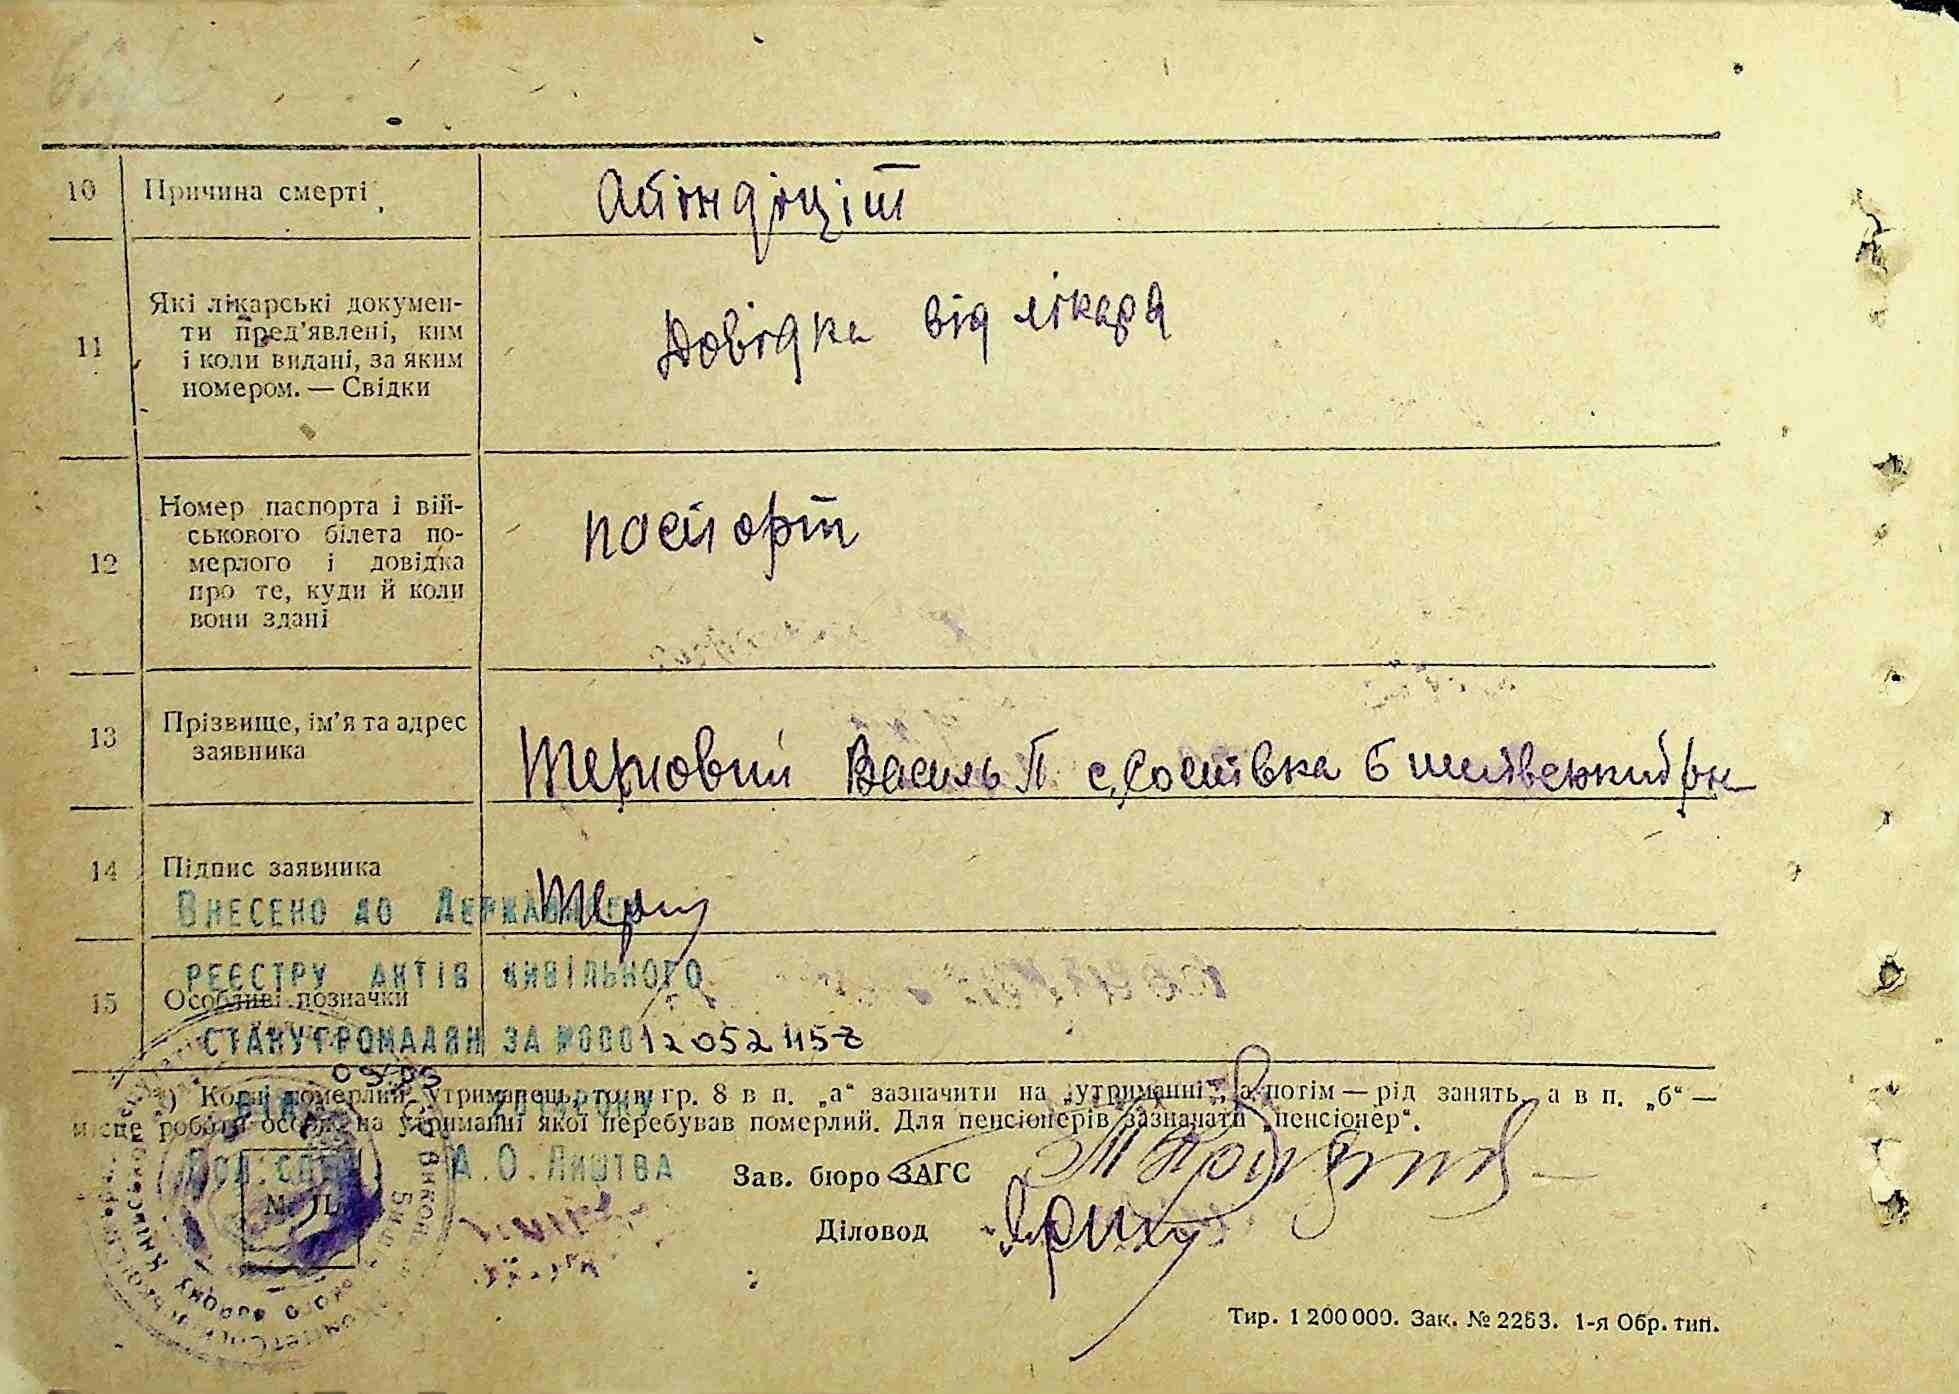 10 Причина смерті Апіндіціт
11 Які лікарські докумен-
ти пред'явлені, ким
і коли видані, за яким
номером. — Свідки
Довідка від лікара
12 Номер паспорта і вій-
ськового білета по-
мерлого і довідка
про те, куди й коли
вони здані
паспорт
13 Прізвище, ім'я та адрес
заявника
Терновий Василь П с.
14 Підпис заявника
Внесено до Державного
реєстру актів цивільного
15 Особливі позначки
стану громадян за №00012052457
*) Коли померлий утриманець, то в гр. 8 в п. „а“ зазначити на „утриманні“, а потім — рід занять, а в п. „б“ —
місце роботи особи, на утриманні якої перебував померлий. Для пенсіонерів зазначати „пенсіонер“.
А.О.Лиштва
Зав. бюро ЗАГС
М. П.
Діловод
Тир. 1 200 000. Зак. № 2253. 1-я Обр. тип.